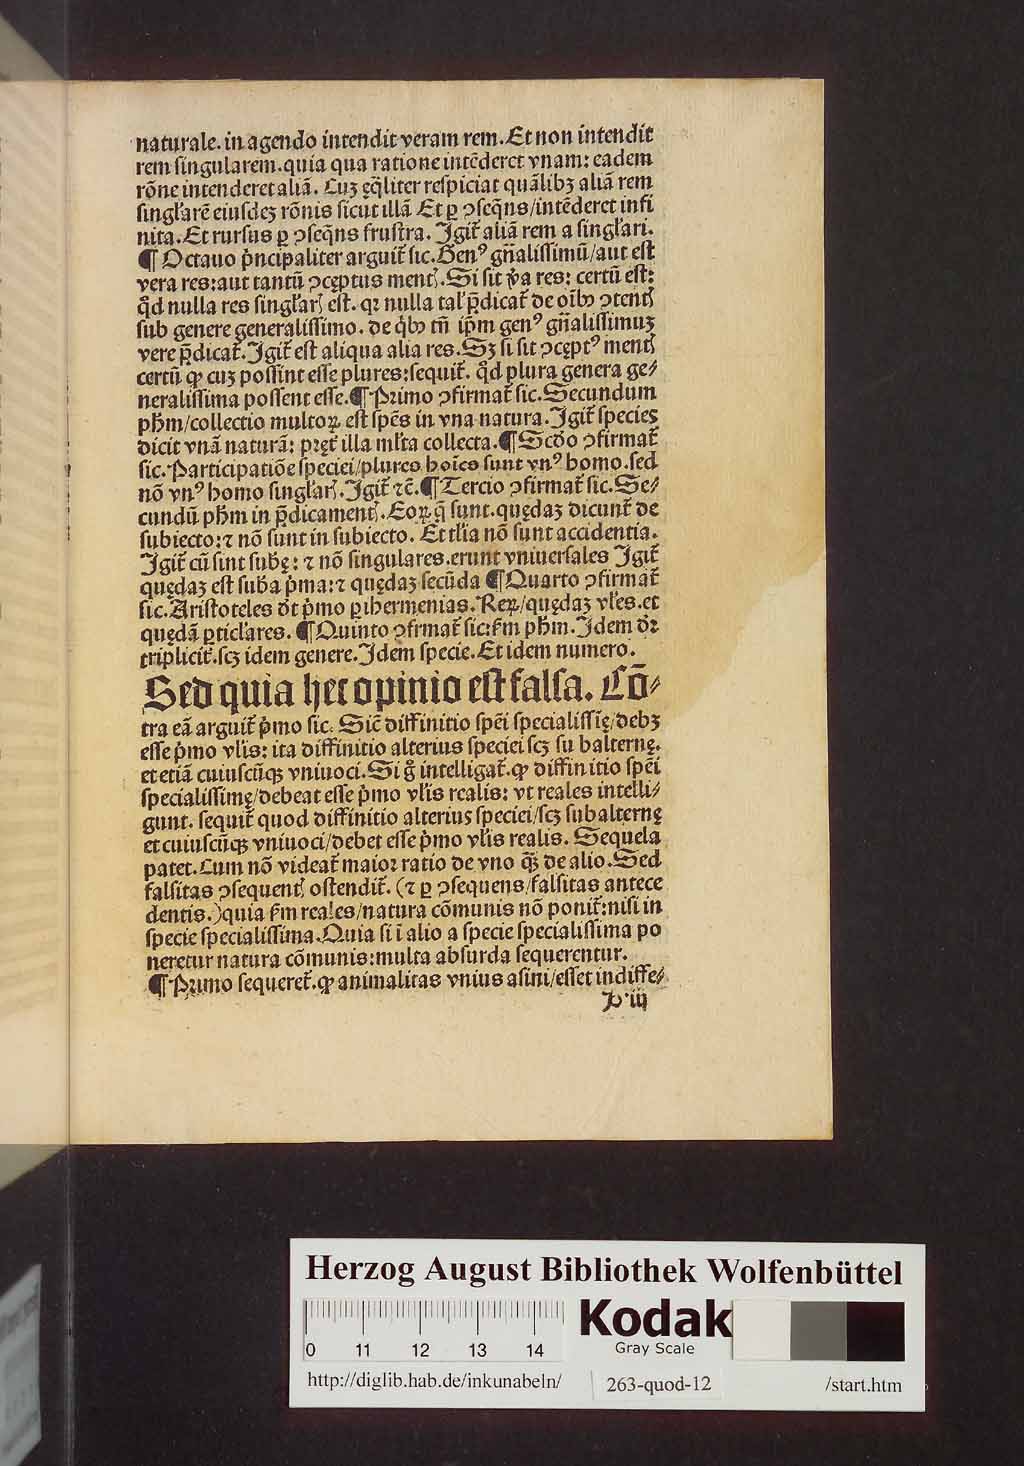 naturale. in agendo intendit veram rem. Et non intendit
rem singularem. quia qua ratione intēderet vnam: eadem
rōne intenderet aliā. Cuȝ eq̄liter respiciat quālibȝ aliā rem
singl'arē eiusdeȝ rōnis sicut illā Et ꝑ ꝯseq̄ns/intēderet infi
nita. Et rursus ꝑ ꝯseq̄ns frustra. Igit̄ aliā rem a singl'ari.
¶ Octauo pͥncipaliter arguit̄ sic. Genꝰ gn̄alissimū/aut est
vera res: aut tantū ꝯceptus mentꝭ. Si sit v̓a res: certū est:
qd̄ nulla res singl'arꝭ est. qꝛ nulla tal' p̄dicat̄ de oībꝰ ꝯtentꝭ
sub genere generalissimo. de qͥbꝰ tn̄ ip̄m genꝰ gn̄alissimuȝ
vere p̄dicat̄. Igit̄ est aliqua alia res. Sȝ si sit ꝯceptꝰ mentꝭ
certū ꝙ cuȝ possint esse plures: sequit̄. qd̄ plura genera ge⸗
neralissima possent esse. ¶ Primo ꝯfirmat̄ sic. Secundum
ph̄m/collectio multoꝝ est spēs in vna natura. Igit̄ species
dicit vnā naturā: pręt̄ illa ml'ta collecta. ¶ Scd̄o ꝯfirmat̄
sic. Participatiōe speciei/plures hoīes sunt vnꝰ homo. sed
nō vnꝰ homo singl'arꝭ. Igit̄ ⁊c̄. ¶ Tercio ꝯfirmat̄ sic. Se⸗
cundū ph̄m in p̄dicamentꝭ. Eoꝝ q̄ sunt. quędaȝ dicunt̄ de
subiecto: ⁊ nō sunt in subiecto. Et tl'ia nō sunt accidentia.
Igit̄ cū sint subę: ⁊ nō singulares. erunt vniuersales Igit̄
quędaȝ est sub̄a pͥma: ⁊ quędaȝ secūda ¶ Quarto ꝯfirmat̄
sic. Aristoteles dt̄ pͥmo ꝑihermenias. Reꝝ/quędaȝ vl'es. et
quędā ꝑticl'ares. ¶ Quinto ꝯfrmat̄ sic: km̄ ph̄m. Idem dꝛ̄
triplicit̄. scȝ idem genere. Idem specie. Et idem numero.
Sed quia hec opinio est falsa. Cō⸗
tra eā arguit̄ pͥmo sic. Sic̄ diffinitio spēi specialissię/debȝ
esse pͥmo vl'is: ita diffinitio alterius speciei scȝ su balternę.
et etiā cuiuscūqꝫ vniuoci. Si gͦ intelligat̄. ꝙ diffinitio spēi
specialissimę/debeat esse pͥmo vl'is realis: vt reales intelli⸗
gunt. sequit̄ quod diffinitio alterius speciei/scȝ subalternę
et cuiuscūqꝫ vniuoci/debet esse pͥmo vl'is realis. Sequela
patet. Cum nō videat̄ maior ratio de vno qͣ̄ȝ de alio. Sed
falsitas ꝯsequentꝭ ostendit̄. (⁊ ꝑ ꝯsequens/falsitas antece
dentis.) quia km̄ reales/natura cōmunis nō ponit̄: nisi in
specie specialissima. Quia si ī alio a specie specialissima po
neretur natura cōmunis: multa absurda sequerentur.
¶ Primo sequeret̄. ꝙ animalitas vnius asini/esset indiffe⸗
b iij
Herzog August Bibliothek Wolfenbüttel
0 11 12 13 14
Kodak
Gray Scale
http://diglib.hab.de/inkunabeln/ 263-quod-12 /start.htm